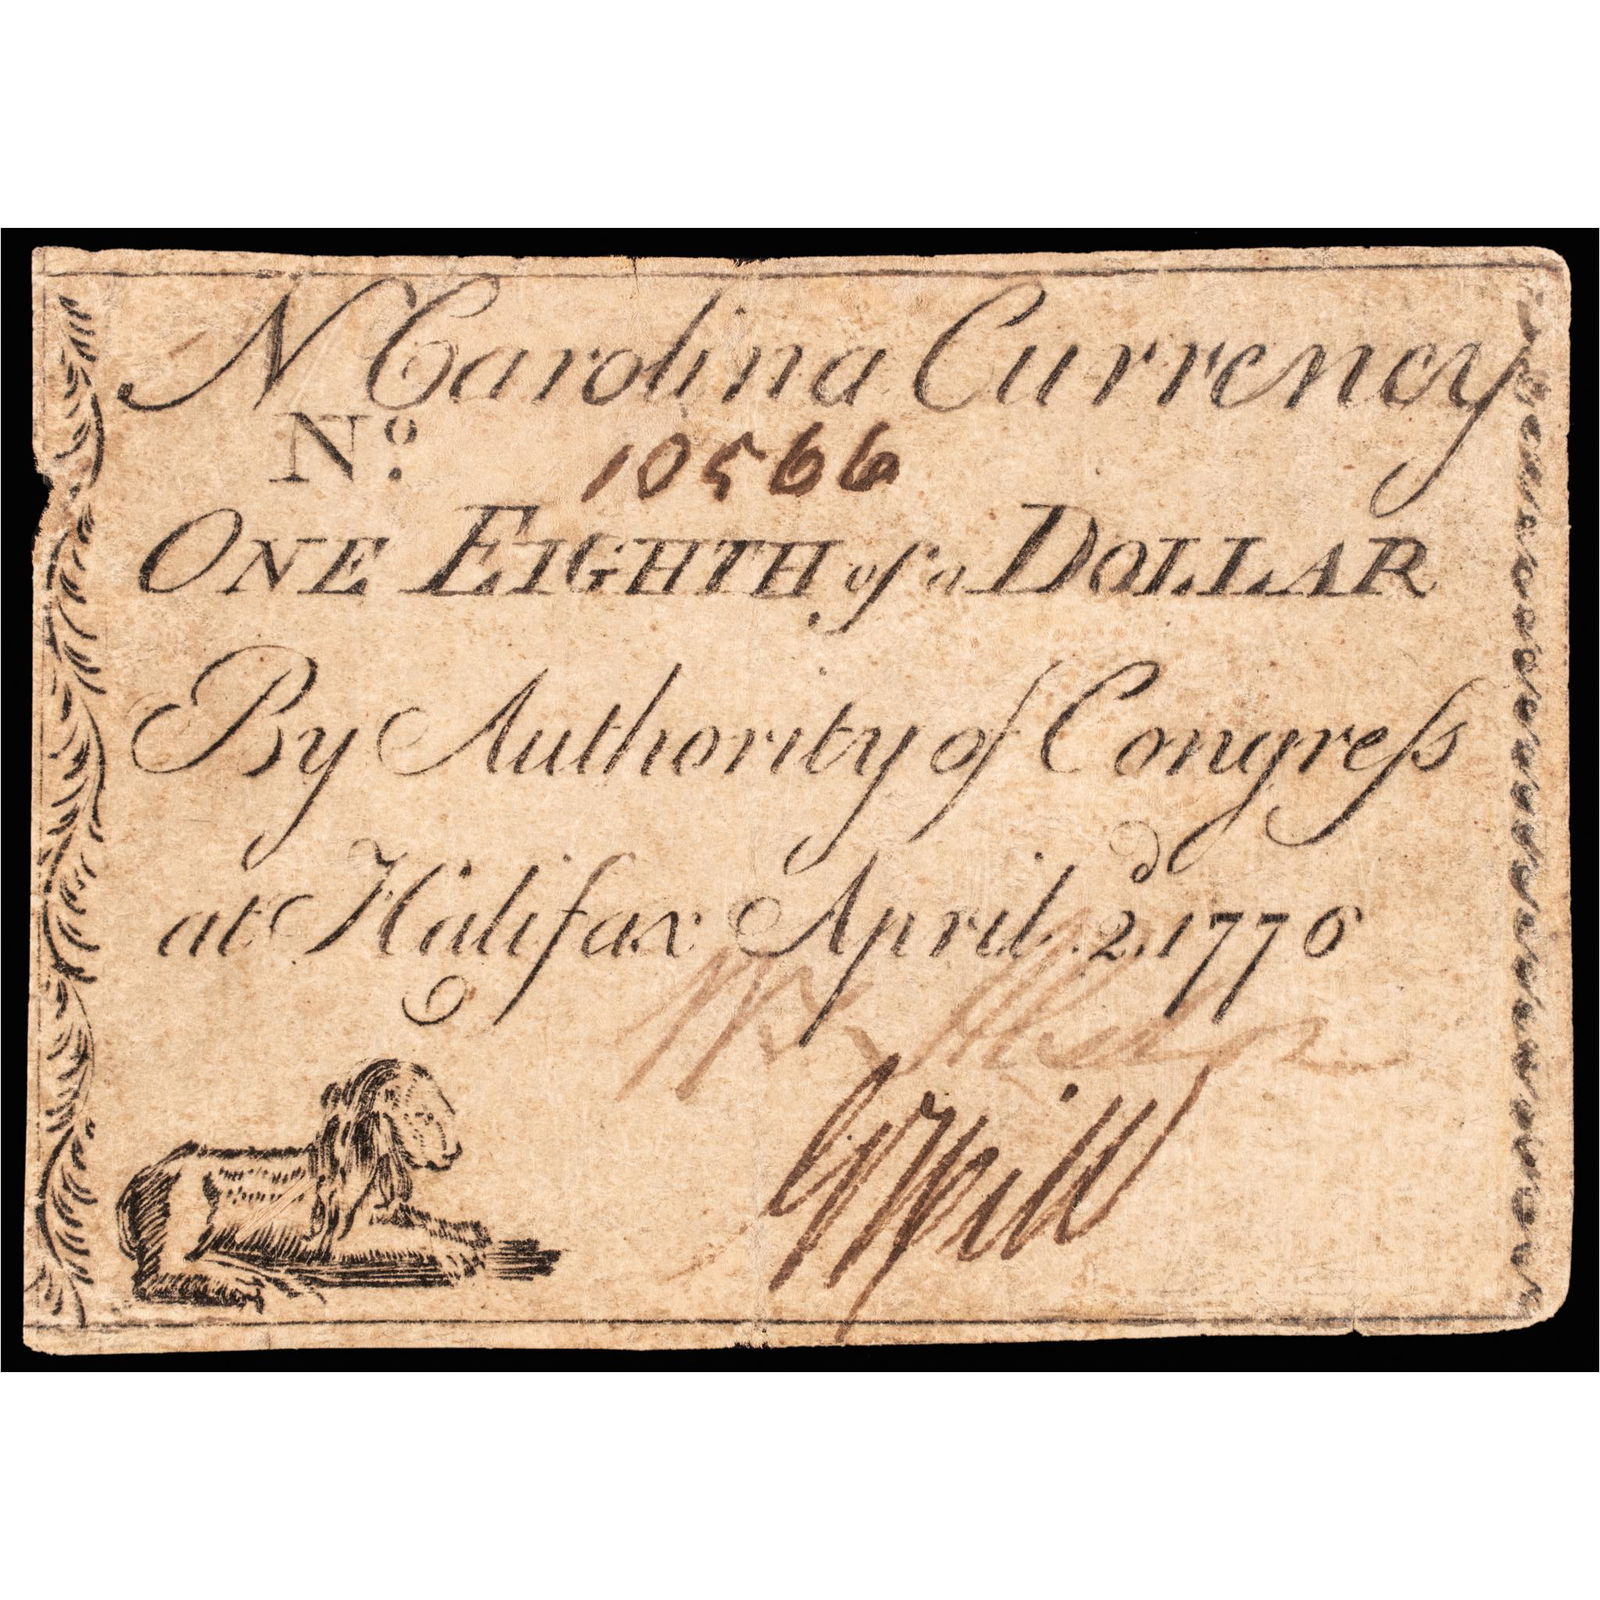 N Carolina Currency
Nº. 10566
ONE EIGHTH of a DOLLAR
By Authority of Congreſs
at Halifax April 2.d 1776